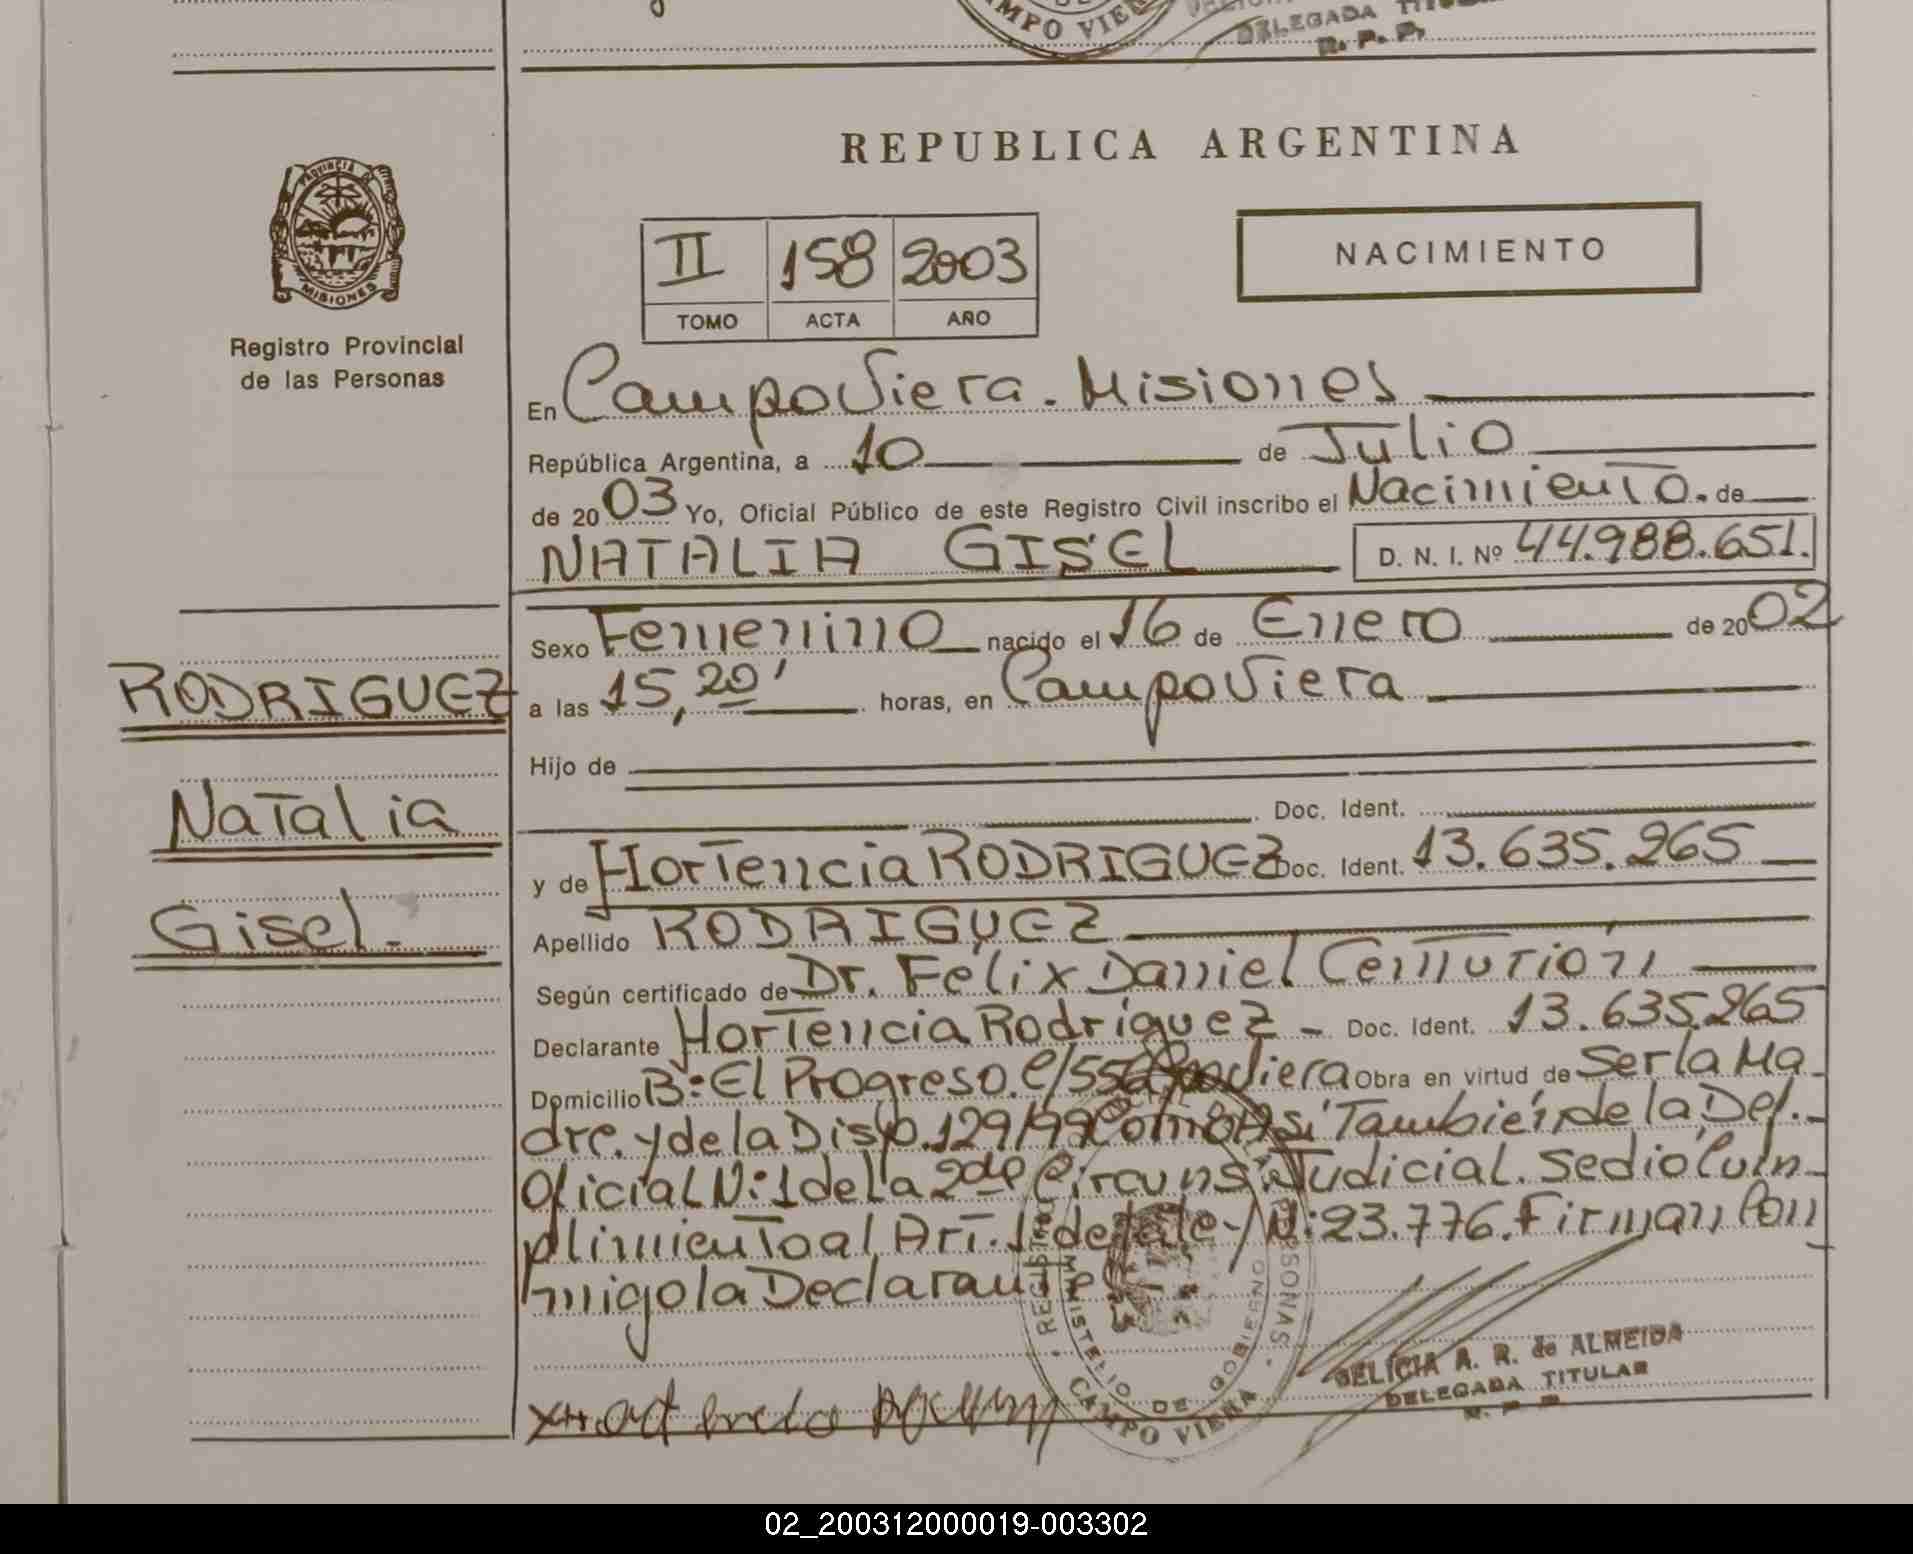 CAMPO VIERA
DELEGADA TITULAR
R. P. P.
REPUBLICA ARGENTINA
PROVINCIA DE
MISIONES
Registro Provincial
de las Personas
II 158 2003
TOMO ACTA AÑO
NACIMIENTO
En Campo Viera. Misiones
República Argentina, a 10 de Julio
de 2003 Yo, Oficial Público de este Registro Civil inscribo el Nacimiento. de
NATALIA GISEL D. N. I. Nº 44.988.651.
Sexo Femenino nacido el 16 de Enero de 2002
RODRIGUEZ
a las 15,20' horas, en Campo Viera
Hijo de
Doc. Ident.
Natalia
y de Hortencia RODRIGUEZ Doc. Ident. 13.635.265
Gisel.
Apellido RODRIGUEZ
Según certificado de Dr. Félix Daniel Centurión
Declarante Hortencia Rodríguez - Doc. Ident. 13.635.265
Domicilio B: El Progreso. C/55 Viera Obra en virtud de Ser la Ma
dre. y de la Disp. 129/99 Como Así También de la Def.
Oficial N: 1 de la 2da Circuns. Judicial. Se dio Cum
plimiento al Art. 1 de la Ley N: 23.776. Firman Con
migo la Declarante
REGISTRO PERSONAS
MINISTERIO DE GOBIERNO
CAMPO VIERA
DELICIA A. R. de ALMEIDA
DELEGADA TITULAR
R. P. P.
02_200312000019-003302